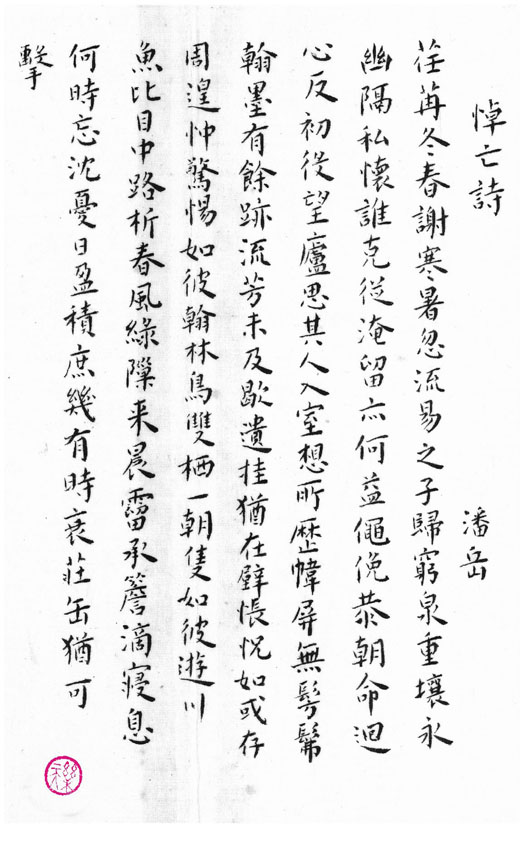 悼亡詩
潘岳
荏苒冬春謝寒暑忽流易之子歸窮泉重壤永
幽隔私懷誰克從淹留亦何益僶俛恭朝命迴
心反初役望廬思其人入室想所歷幃屏無髣髴
翰墨有餘跡流芳未及歇遺挂猶在壁悵怳如或存
周遑忡驚惕如彼翰林鳥雙栖一朝隻如彼遊川
魚比目中路析春風緣隟来晨霤承簷滴寢息
何時忘沈憂日盈積庶幾有時衰莊缶猶可
擊